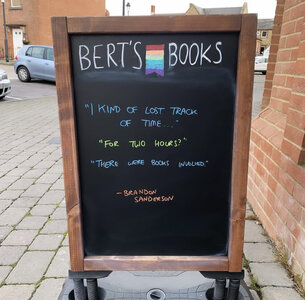 BERT'S BOOKS
"I KIND OF LOST TRACK
OF TIME..."
"FOR TWO HOURS?"
"THERE WERE BOOKS INVOLVED."
- BRANDON
SANDERSON